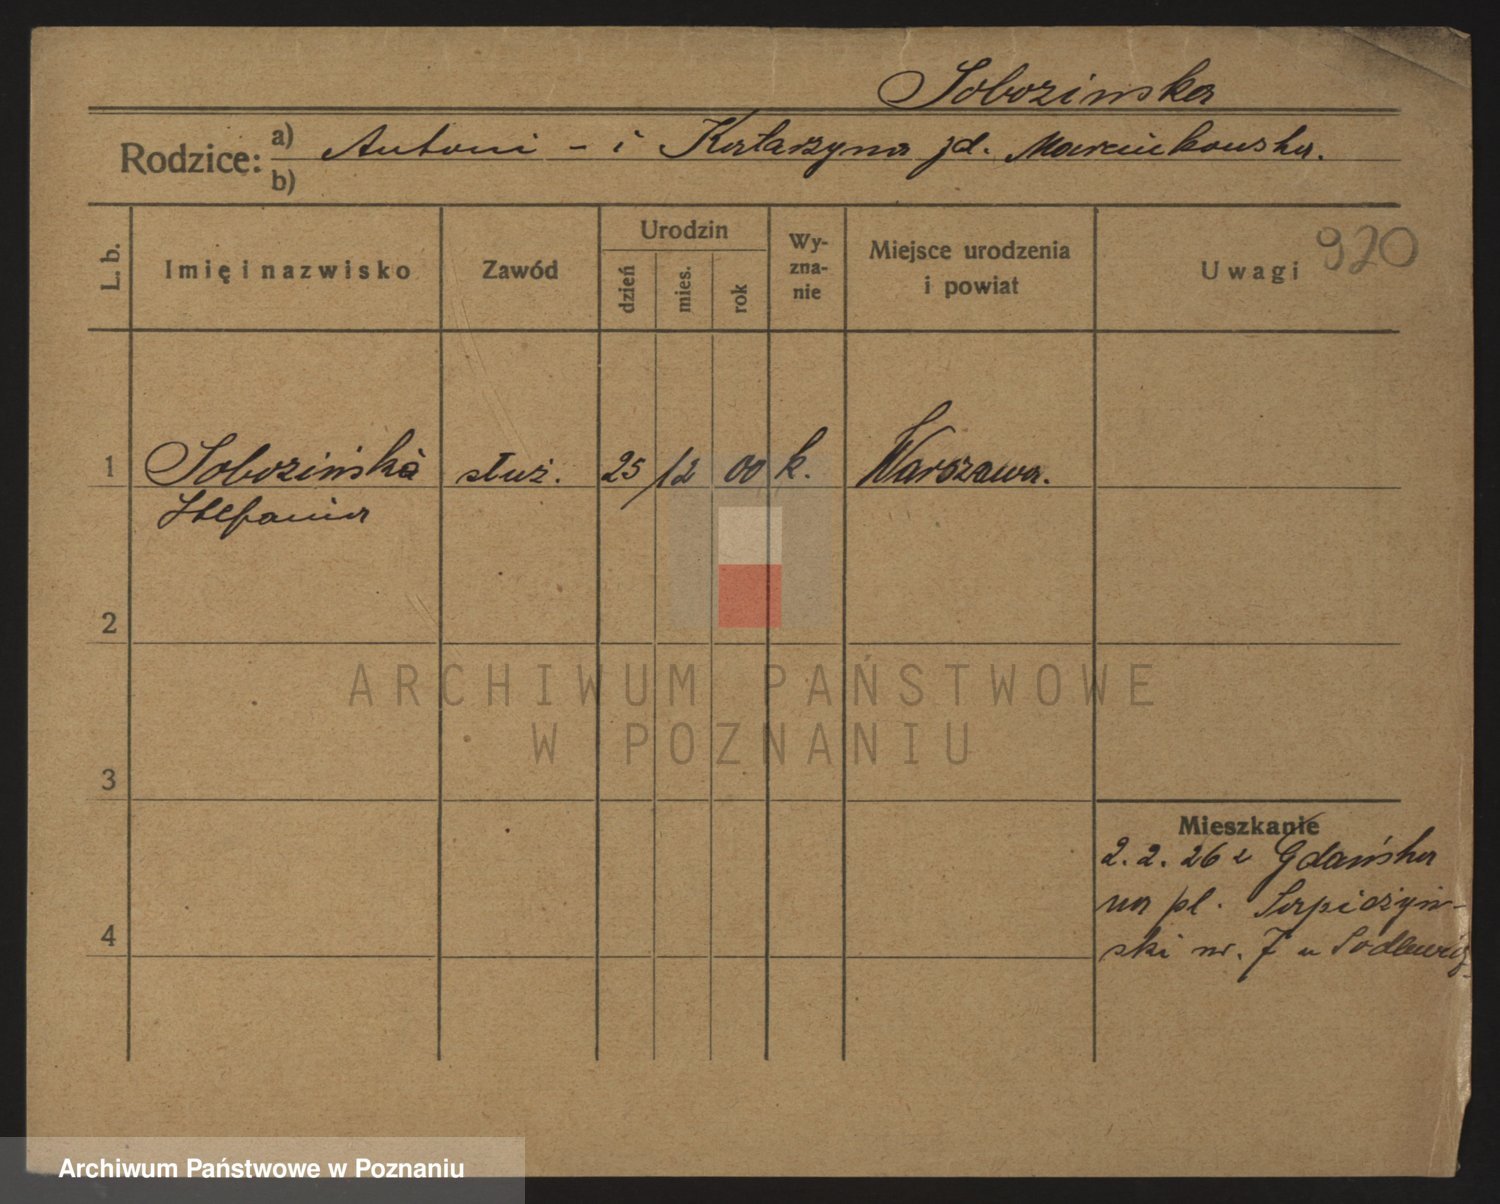 Sobozinska
Rodzice: a) Antoni - i Katarzyna jd. Marcinkowska.
b)
L. b.
Imię i nazwisko
Zawód
Urodzin
dzień
mies.
rok
Wy-
zna-
nie
Miejsce urodzenia
i powiat
Uwagi
920
1 Sobozińska służ. 25/12 00 k. Warszawa.
Stefania
2
3
4
Mieszkanie
2. 2. 26 z Gdańska
na pl.
ski nr. 7 u
ARCHIWUM PAŃSTWOWE
W POZNANIU
Archiwum Państwowe w Poznaniu